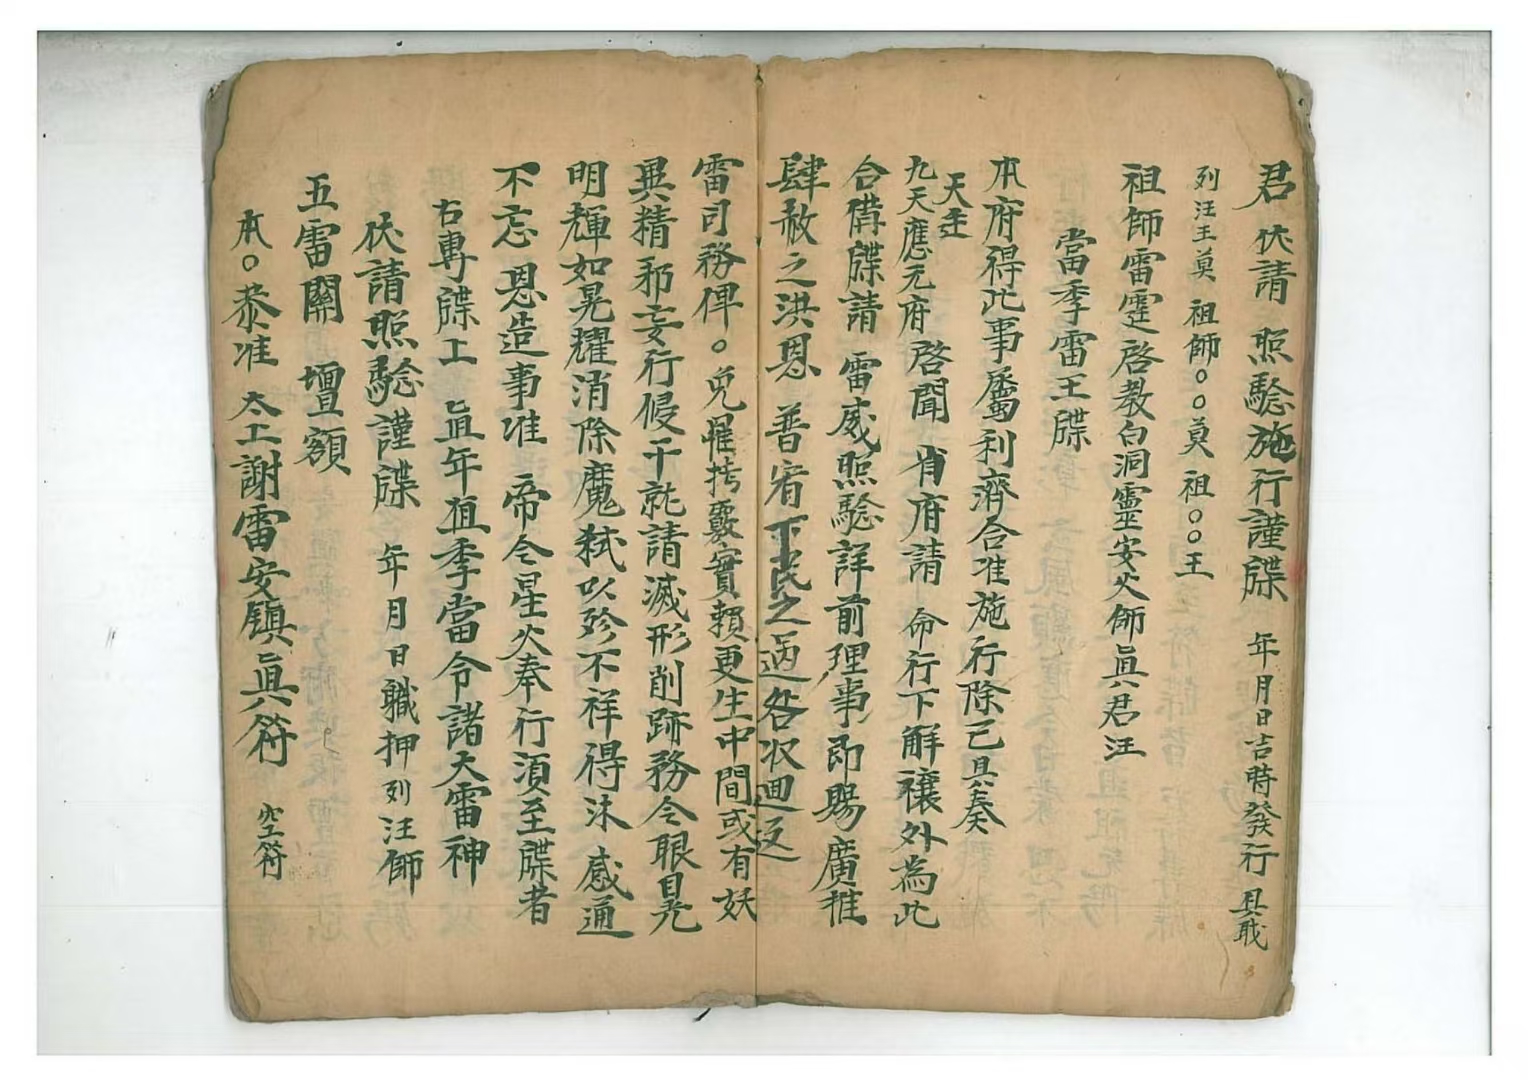 君伏請 照驗施行謹牒 年月日吉時發行 具職
列汪王莫 祖師○○莫 祖○○王
祖師雷霆啓教白洞靈安火師眞君汪
當季雷王牒
本府得此事屬利濟合准施行除已具奏
天主
九天應元府 啓聞 省府請 命行下解禳外為此
合備牒請 雷威照驗詳前理事即賜廣推
肆赦之洪恩 普宥下民之過咎収迴返
雷司務俾○免罹拷覈實賴更生中間或有妖
異精邪妄行侵干就請滅形削跡務令眼晃
明輝如晃耀消除魔弑以殄不祥得沐 感通
不忘 恩造事准 帝令星火奉行須至牒者
右專牒上 眞年狙季當令諸大雷神
伏請照驗謹牒 年月日職押列汪師
五雷關 壇額
本○恭准 太上謝雷安鎮眞符 空符